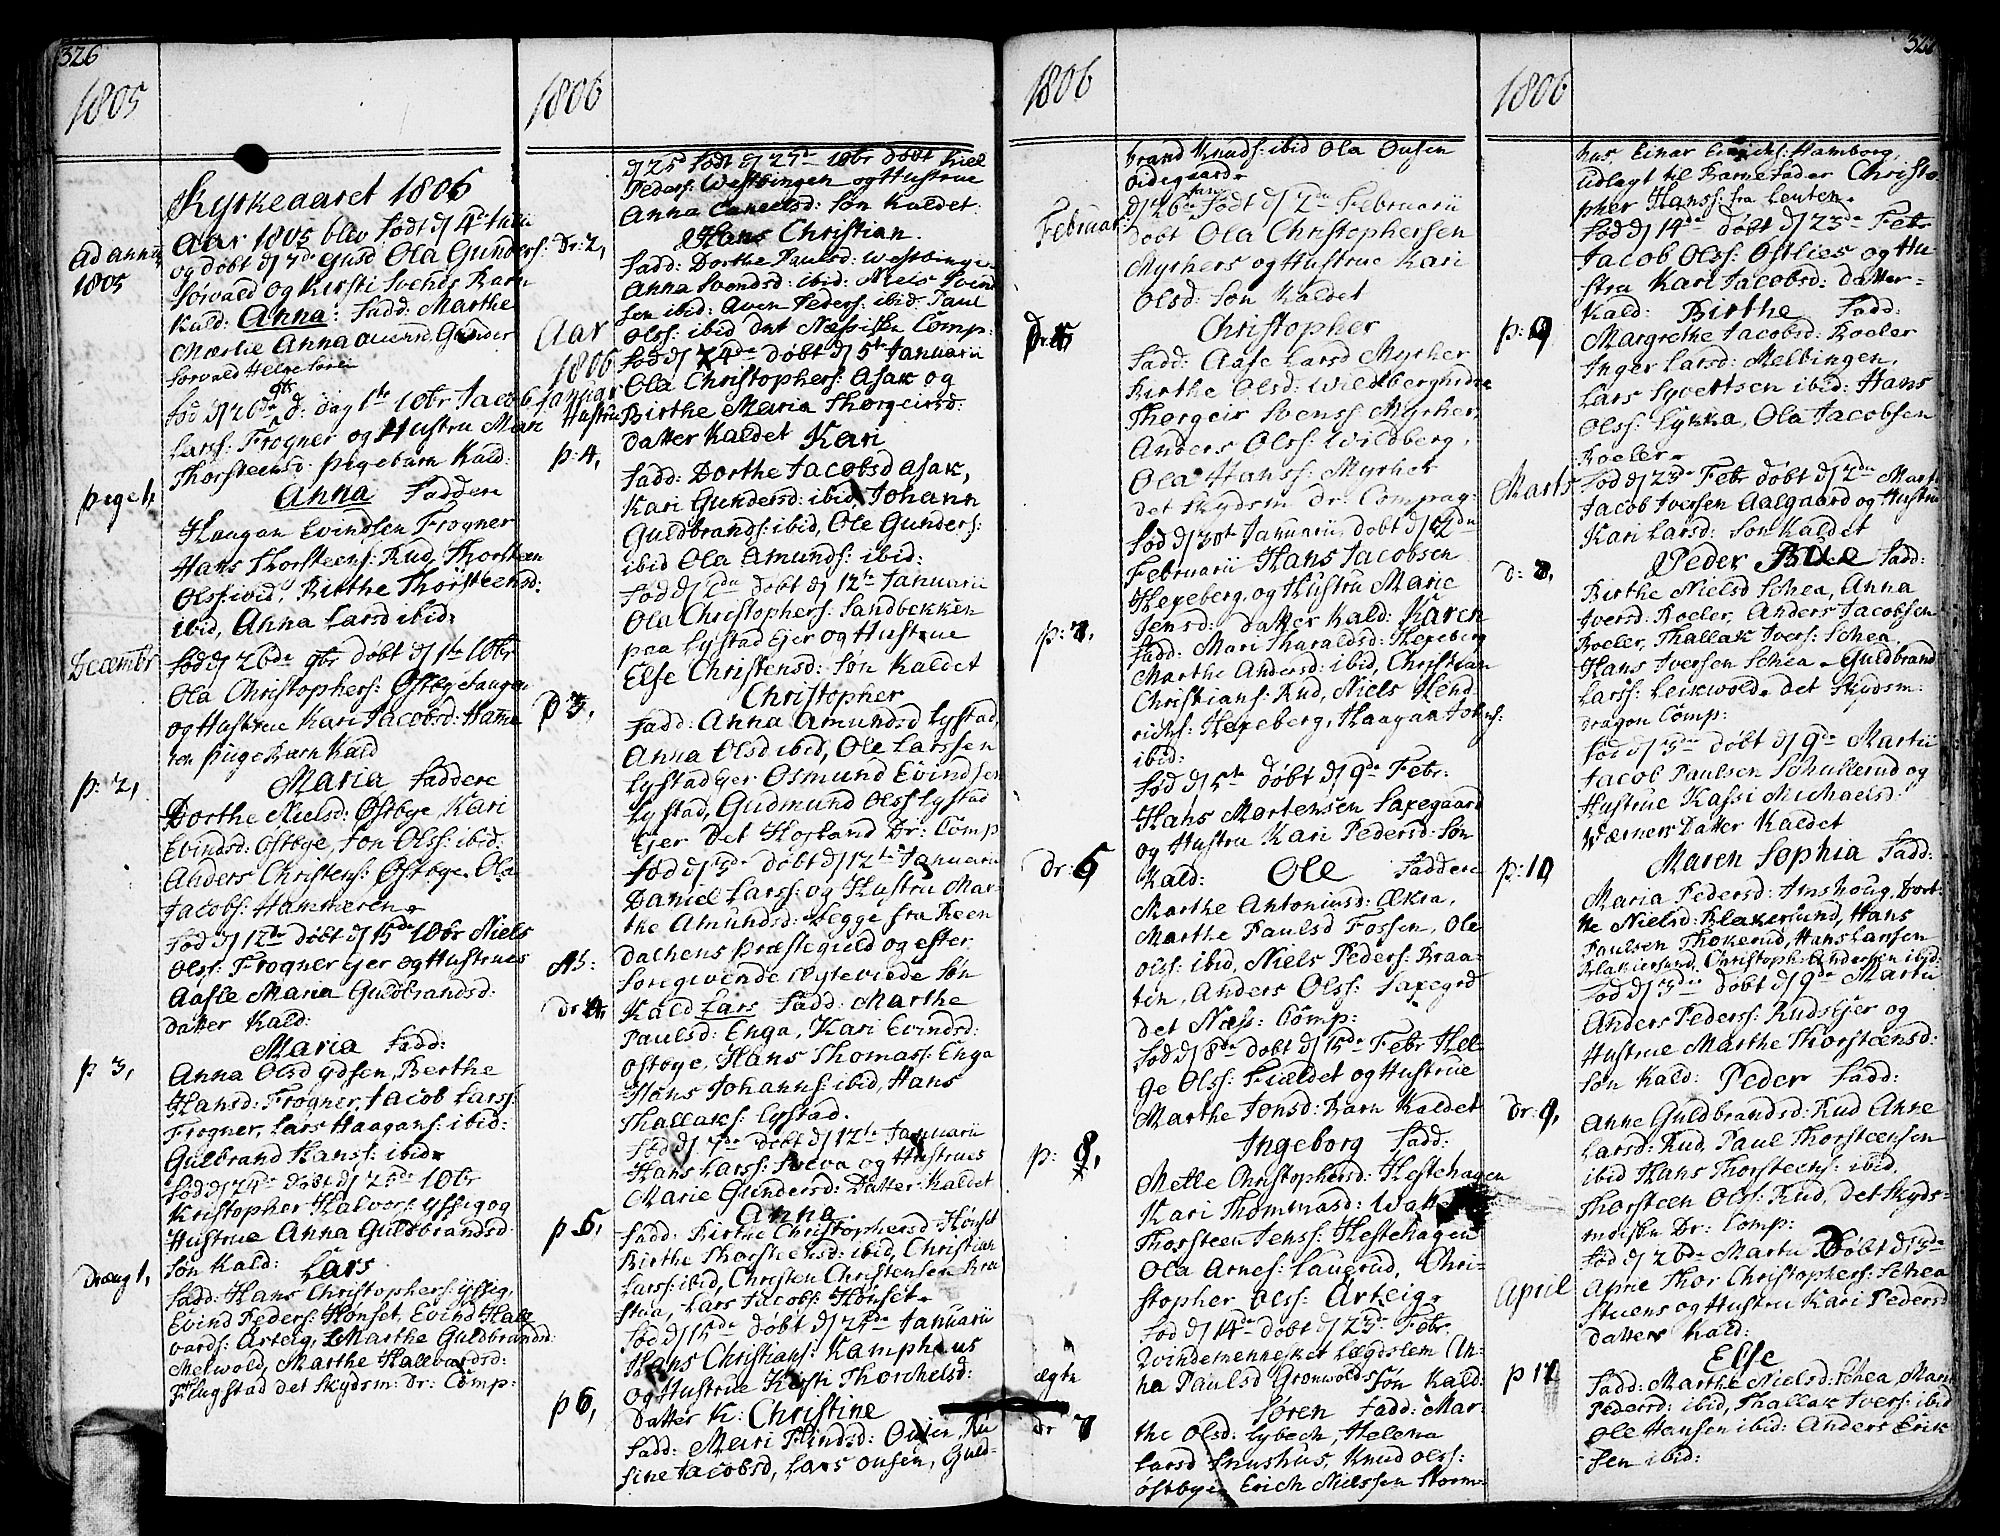 326
1805
Kyrkeaaret 1806
Ad annū
1805
Aar 1805 blev født d 4de
og døbt d Ola Gunders:
Sørvald og Kirsti Svends Barn
Kald: Anna: Fadd: Marthe
Mærlie Anna Gunder
Sørvald Helge
fød d 26de d: dag 1te 10br Jacob
Larss: Frogner og Hustru Mari
Thorsteensd: pigebarn Kald:
pige 1,
Anna Faddere
Haagan Evindsen Frogner
Hans Thorsteens: Rud, Thorsteen
Olss: ibid, Birthe Thorsteensd:
ibid, Anna Larsd ibid:
Decembr
fød d 26de 9br døbt d 1te 10br
Ola Christophers: Østbye
og Hustrue Kari Jacobsd: Hamme
ren pige Barn Kald
p: 2,
Maria Faddere
Dorthe Nielsd: Østbye, Kari
Evindsd: Østbye, Jon Olss: ibid:
Anders Christens: Østbye. Ola
Jacobs: Hammeren
fød d 12te døbt d 15de 10br Niels
Olss: Frogner Ejer og Hustrues
Aasle Maria Guldbrandsd:
datter Kald:
p 3,
Maria Fadd:
Anna Olsd Ydsen, Berthe
Hansd: Frogner, Jacob Larss:
Frogner, Lars Haagans: ibid:
Gulbrand Hanss: ibid
fød d 24de døbt d 26de 10br
Kristopher Halvors: Yssig og
Hustrue Anna Guldbrandsd:
Søn Kald: Lars
Dreng 1,
Fadd: Hans Christophers: Yssig,
Evind Peders: Hønset, Evind Hall
vards: Arteig, Marthe Guldbrandsd:
Melwold, Marthe Hallvardsd:
Flugstad det Skydsm: Dr: Comp:
1806
d 25d født d 27de 10br døbt Kiel
Peders: Westbingen og Hustrue
Anna søn Kaldet:
Dr: 2,
Hans Christian.
Fadd: Dorthe Paulsd: Westbingen
Anna Svendsd: ibid: Niels Svend
sen ibid: Aven Peders: ibid: Paul
Olss: ibid det Næssiske Comp:
Aar
1806
Januar
fød d 4de døbt d 5te Januarii
Ola Christophers: Asak og
Hustru Birthe Maria Thorgeirsd:
datter Kaldet Kari
p: 4,
Fadd: Dorthe Jacobsd Asak,
Kari Gundersd: ibid, Johann
Guldbrands: ibid, Ole Gunders:
ibid Ola Amunds: ibid:
fød d 6de døbt d 12te Januarii
Ola Christophers: Sandbekken
paa Lystad Ejer og Hustrue
Else Christensd: Søn Kaldet
D 3,
Christopher
Fadd: Anna Amundsd Lystad,
Anna Olsd ibid, Ole Larssen
Lystad Ejer Osmund Evindsen
Lystad, Gudmund Olss Lystad
Ejer Det Høgland Dr: Comp
fød d 5de døbt d 12te Januarii
Daniel Larss: og Hustru Mar-
the Amundsd: begge fra Reen
dalens Præstegield og efter
Ab:
foregivende Ægteviede Søn
Dr: 4,
Kald Lars Fadd: Marthe
Paulsd: Enga, Kari Evindsd:
Østbye, Hans Thomass: Enga
Hans Johanns: ibid, Hans
Thallaks: Lystad.
fød d 7de døbt d 12te Januarii
Hans Larss: Sveva og Hustrues
Marie Gundersd: Datter Kaldet
p 5,
Anna.
Fadd: Birthe Christophersd Hønset
Birthe Thorsteensd: ibid, Christian
Larss: ibid, Christen Christensen Bra
staa, Lars Jacobs: Hønset
fød d 15de døbt d 26de Januarii
Hans Christians: Kamphuus
og Hustrue Kirsti Thorchelsd:
p 6,
datter K: Christine
Fadd: Mari Flindsd: Ousen, Ra
sine Jacobsd, Lars Ousen, Guld-
1806
brand Knuds: ibid Ola Ousen
Oidegaard
Februar
d 26de Jan født d 2de Februarii
døbt Ola Christophersen
Myrhers og Hustrue Kari
Olsd: Søn Kaldet
Dr: 5
Christopher
Fadd: Aase Larsd Myrher
Birthe Olsd: Wildberghidde
Thorgeir Svenss: Myrher,
Anders Olss: Wildberg,
Ola Hanss: Myrher
det Skydsm dr: Compag:
fød d 30te Januarii, døbt d 2de
Februarii Hans Jacobsen
Hexeberg, og Hustru Marie
Jensd: datter Kald: Karen
p: 7,
Fadd: Mari Tharaldsd: Hexeberg
Marthe Andersd: ibid, Christian
Christians: Rud, Niels Hend-
richs: Hexeberg, Haagan Johns:
ibid:
fød d 5te døbt d 9de Febr:
Hans Mortensen Saxegaard
og Hustru Kari Pedersd: Søn
Dr: 6
Kald: Ole Faddere
Marthe Antoniusd: Ækra,
Marthe Paulsd Fossen, Ole
Olss: ibid, Niels Peders: Braa-
ten, Anders Olss: Saxegrd
det Næss: Comp:
fød d 8de døbt d 15de Febr Hel-
ge Olss: Fieldet og Hustrue
Marthe Jensd: Barn Kaldet
p: 8,
Ingeborg Fadd:
Mette Christophersd: Hestehagen
Kari Thommasd: Watt
Thorsteen Jenss: Hestehagen
Ola Arnes: Laugrud, Chri-
stopher Olss: Arteig
fød d 14de døbt d 23de Febr.
uægte
Qvindemennesket Lægdslem An-
na Paulsd Grønwolds Søn Kald:
Dr 7
Søren Fadd: Mar-
the Olsd: Lybech, Helena
Larsd Snushus, Knud Olss:
Østbye, Erich Nielssen Storm-
1806
hus Einar Erichs: Hamborg,
Udlagt til Barnefader Christo
pher Hanss: fra Leuten.
fød d 14de døbt d 23de Febr
Jacob Olss: Østlies og Hu-
stru Kari Jacobsd: datter
Kald: Birthe Fadd:
p: 9
Margrethe Jacobsd: Roeler
Inger Larsd: Melbingen,
Lars Syvertsen ibid: Hans
Olss: Lykka, Ola Jacobsen
Roeler
Marts
fød d 23de Febr døbt d 2de Marti
Jacob Iversen Aalgaard og Hustru
Kari Larsd: Søn Kaldet
D: 8,
Peder Bue Fadd:
Birthe Nielsd Schea, Anna
Iversd: Roeler, Anders Jacobsen
Roeler, Thallak Ivers: Schea
Hans Iversen Schea. Guldbrand
Larss: Leikwold. det Skydsm:
dragon Comp:
fød d 3de døbt d 9de Martii
Jacob Paulsen Schullerud og
Hustrue Kassi Michaelsd:
Wærner Datter Kaldet
p: 10
Maren Sophia Fadd:
Maria Pedersd: Amshoug, Dort
he Nielsd: Blakersund, Hans
Paulsen Thokerud, Hans Larsen
Blakiersund, Christoph: Andersen ibid:
fød d 3de døbt d 9de Martii
Anders Peders: Ruds Ejer og
Hustrue Marthe Thorsteensd:
Søn Kald: Peder Fadd:
Dr: 9,
Anne Guldbrandsd: Rud Anne
Larsd: Rud, Paul Thorsteensen
ibid Hans Thorsteens: ibid,
Thorsteen Olss: Rud, det Skyds-
moiske Dr: Comp:
fød d 26de Martii Døbt d 3de
April
Aprie Thor Christophers: Schea
Stuens og Hustru Kari Pedersd
datter Kald:
p 11
Else
Fadd: Marthe Nielsd: Schea, Mari
Pedersd: ibid, Thallak Ivers: ibid
Ole Hansen ibid: Anders Erik
sen ibid: